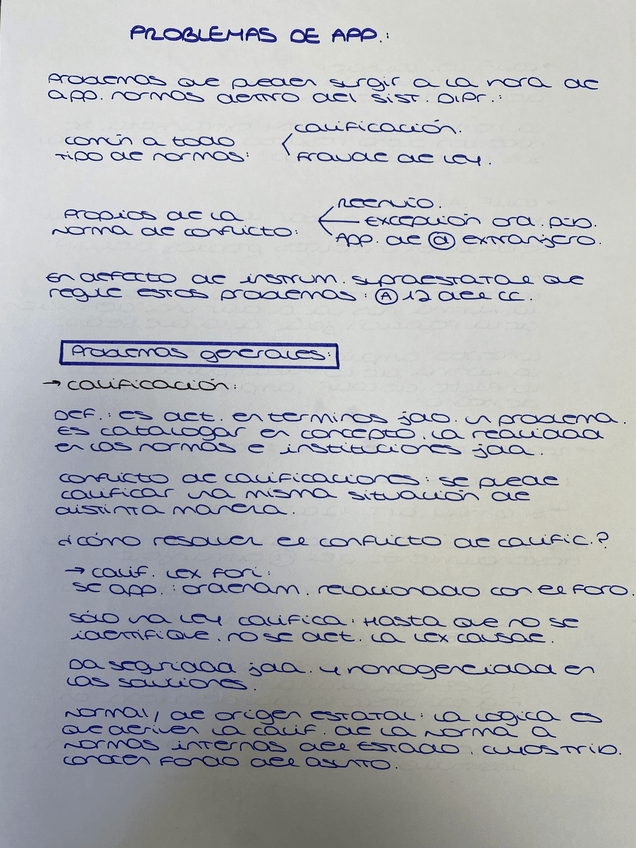 PROBLEMAS DE APP.:
Problemas que pueden surgir a la hora de
app. normas dentro del sist. DIPr.:
común a todo
tipo de normas:
calificación.
fraude de ley.
Propios de la
norma de conflicto:
Reenvío.
Excepción ord. púb.
App. de ⓓ extranjero.
En defecto de instrum. supraestatal que
regule estos problemas: Ⓐ 12 del CC.
Problemas generales:
→ calificación:
DEF.: es det. en términos jdo. un problema.
Es catalogar en concepto. la realidad
en las normas e instituciones jda.
conflicto de calificaciones: se puede
calificar una misma situación de
distinta manera.
¿cómo resolver el conflicto de calific.?
→ calif. lex fori:
se app.: ordenam. relacionado con el foro.
Sólo una ley califica: hasta que no se
identifique. no se det. la lex causae.
Da seguridad jda. y homogeneidad en
las soluciones.
Normal/, de origen estatal: la lógica es
que deriven la calif. de la norma a
normas internas del Estado. cuyos trib.
conocen fondo del asunto.